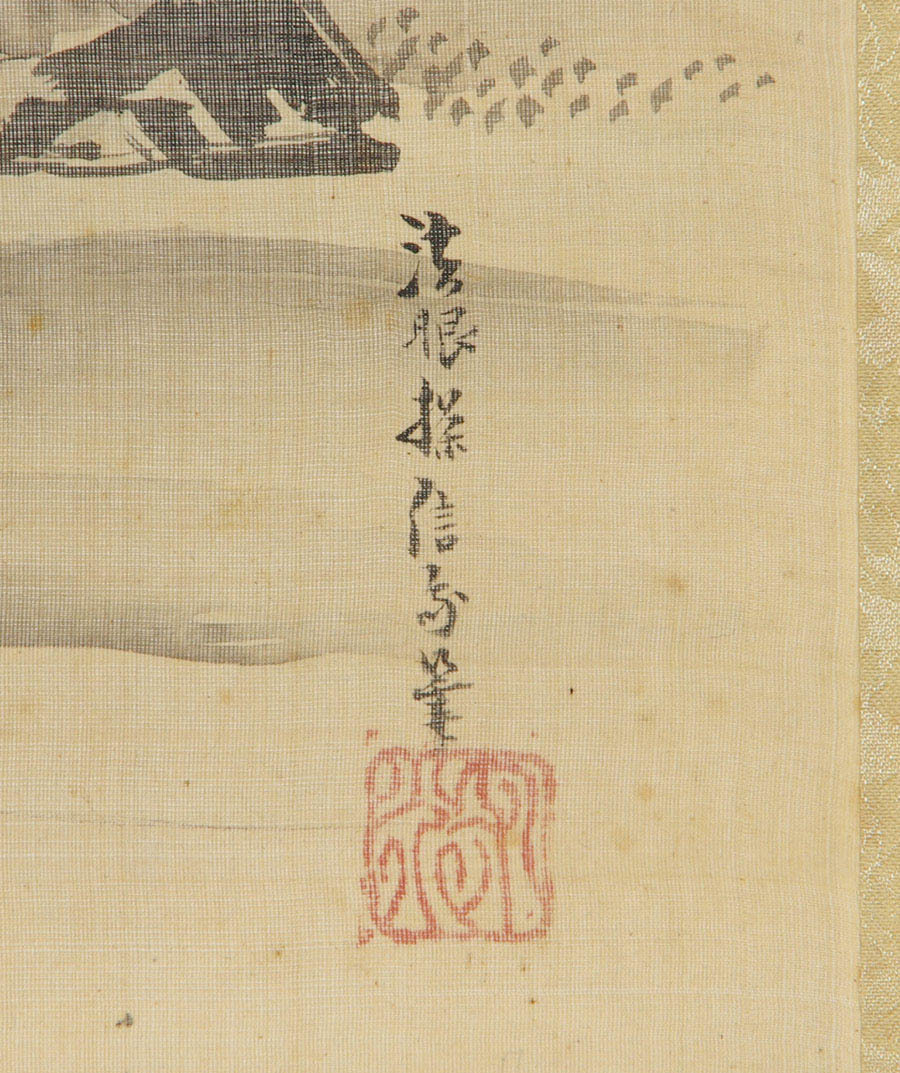 法眼探信斎筆